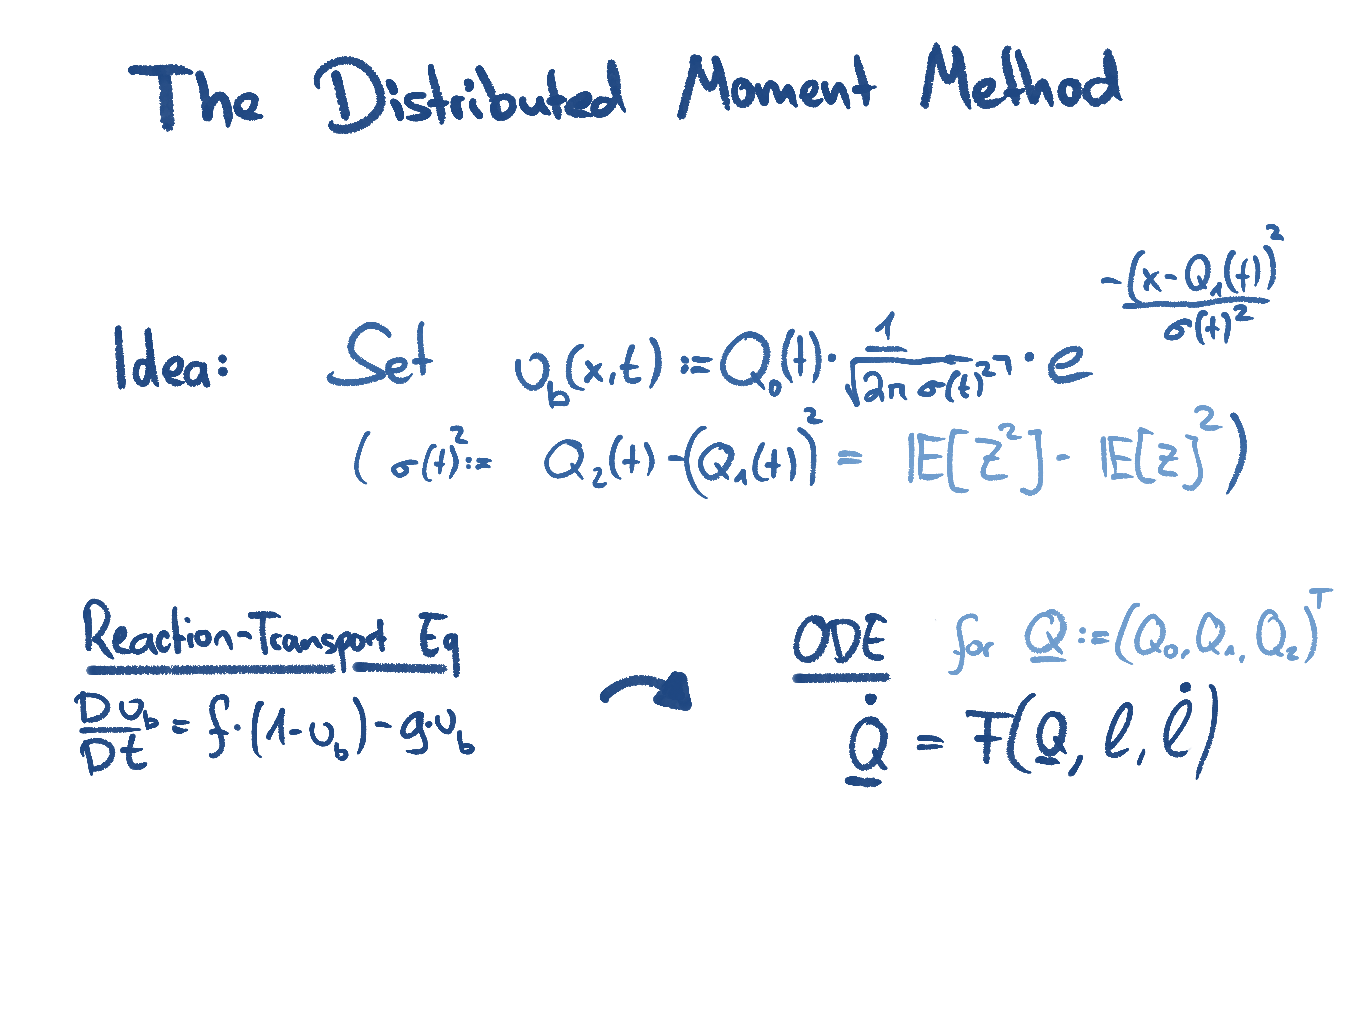 The Distributed Moment Method
Idea: Set υ_b(x,t) := Q₀(t) · 1/√(2π σ(t)²) · e^(-(x-Q₁(t))²/σ(t)²)
( σ(t)² := Q₂(t) - (Q₁(t))² = 𝔼[Z²] - 𝔼[Z]² )
Reaction-Transport Eq
Dυ_b/Dt = f·(1-υ_b) - g·υ_b
ODE for Q := (Q₀, Q₁, Q₂)ᵀ
Q̇ = F(Q, ℓ, ℓ̇)